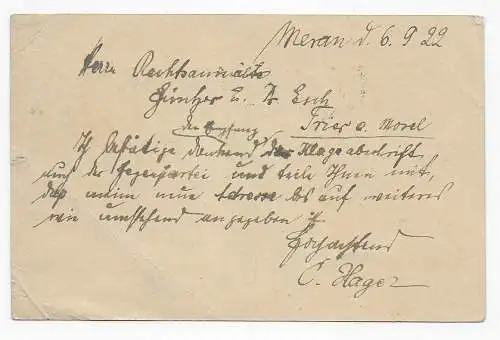 Meran d. 6. 9 22
Herrn Rechtsanwälte
Günther u. Dr Esch
Trier a. Mosel
den Empfang
Ich bestätige dankend der Klageabschrift
und der Gegenpartei und teile Ihnen mit,
daß meine neue Adresse bis auf weiteres
wie umstehend angegeben ist
Hochachtend
C. Hager